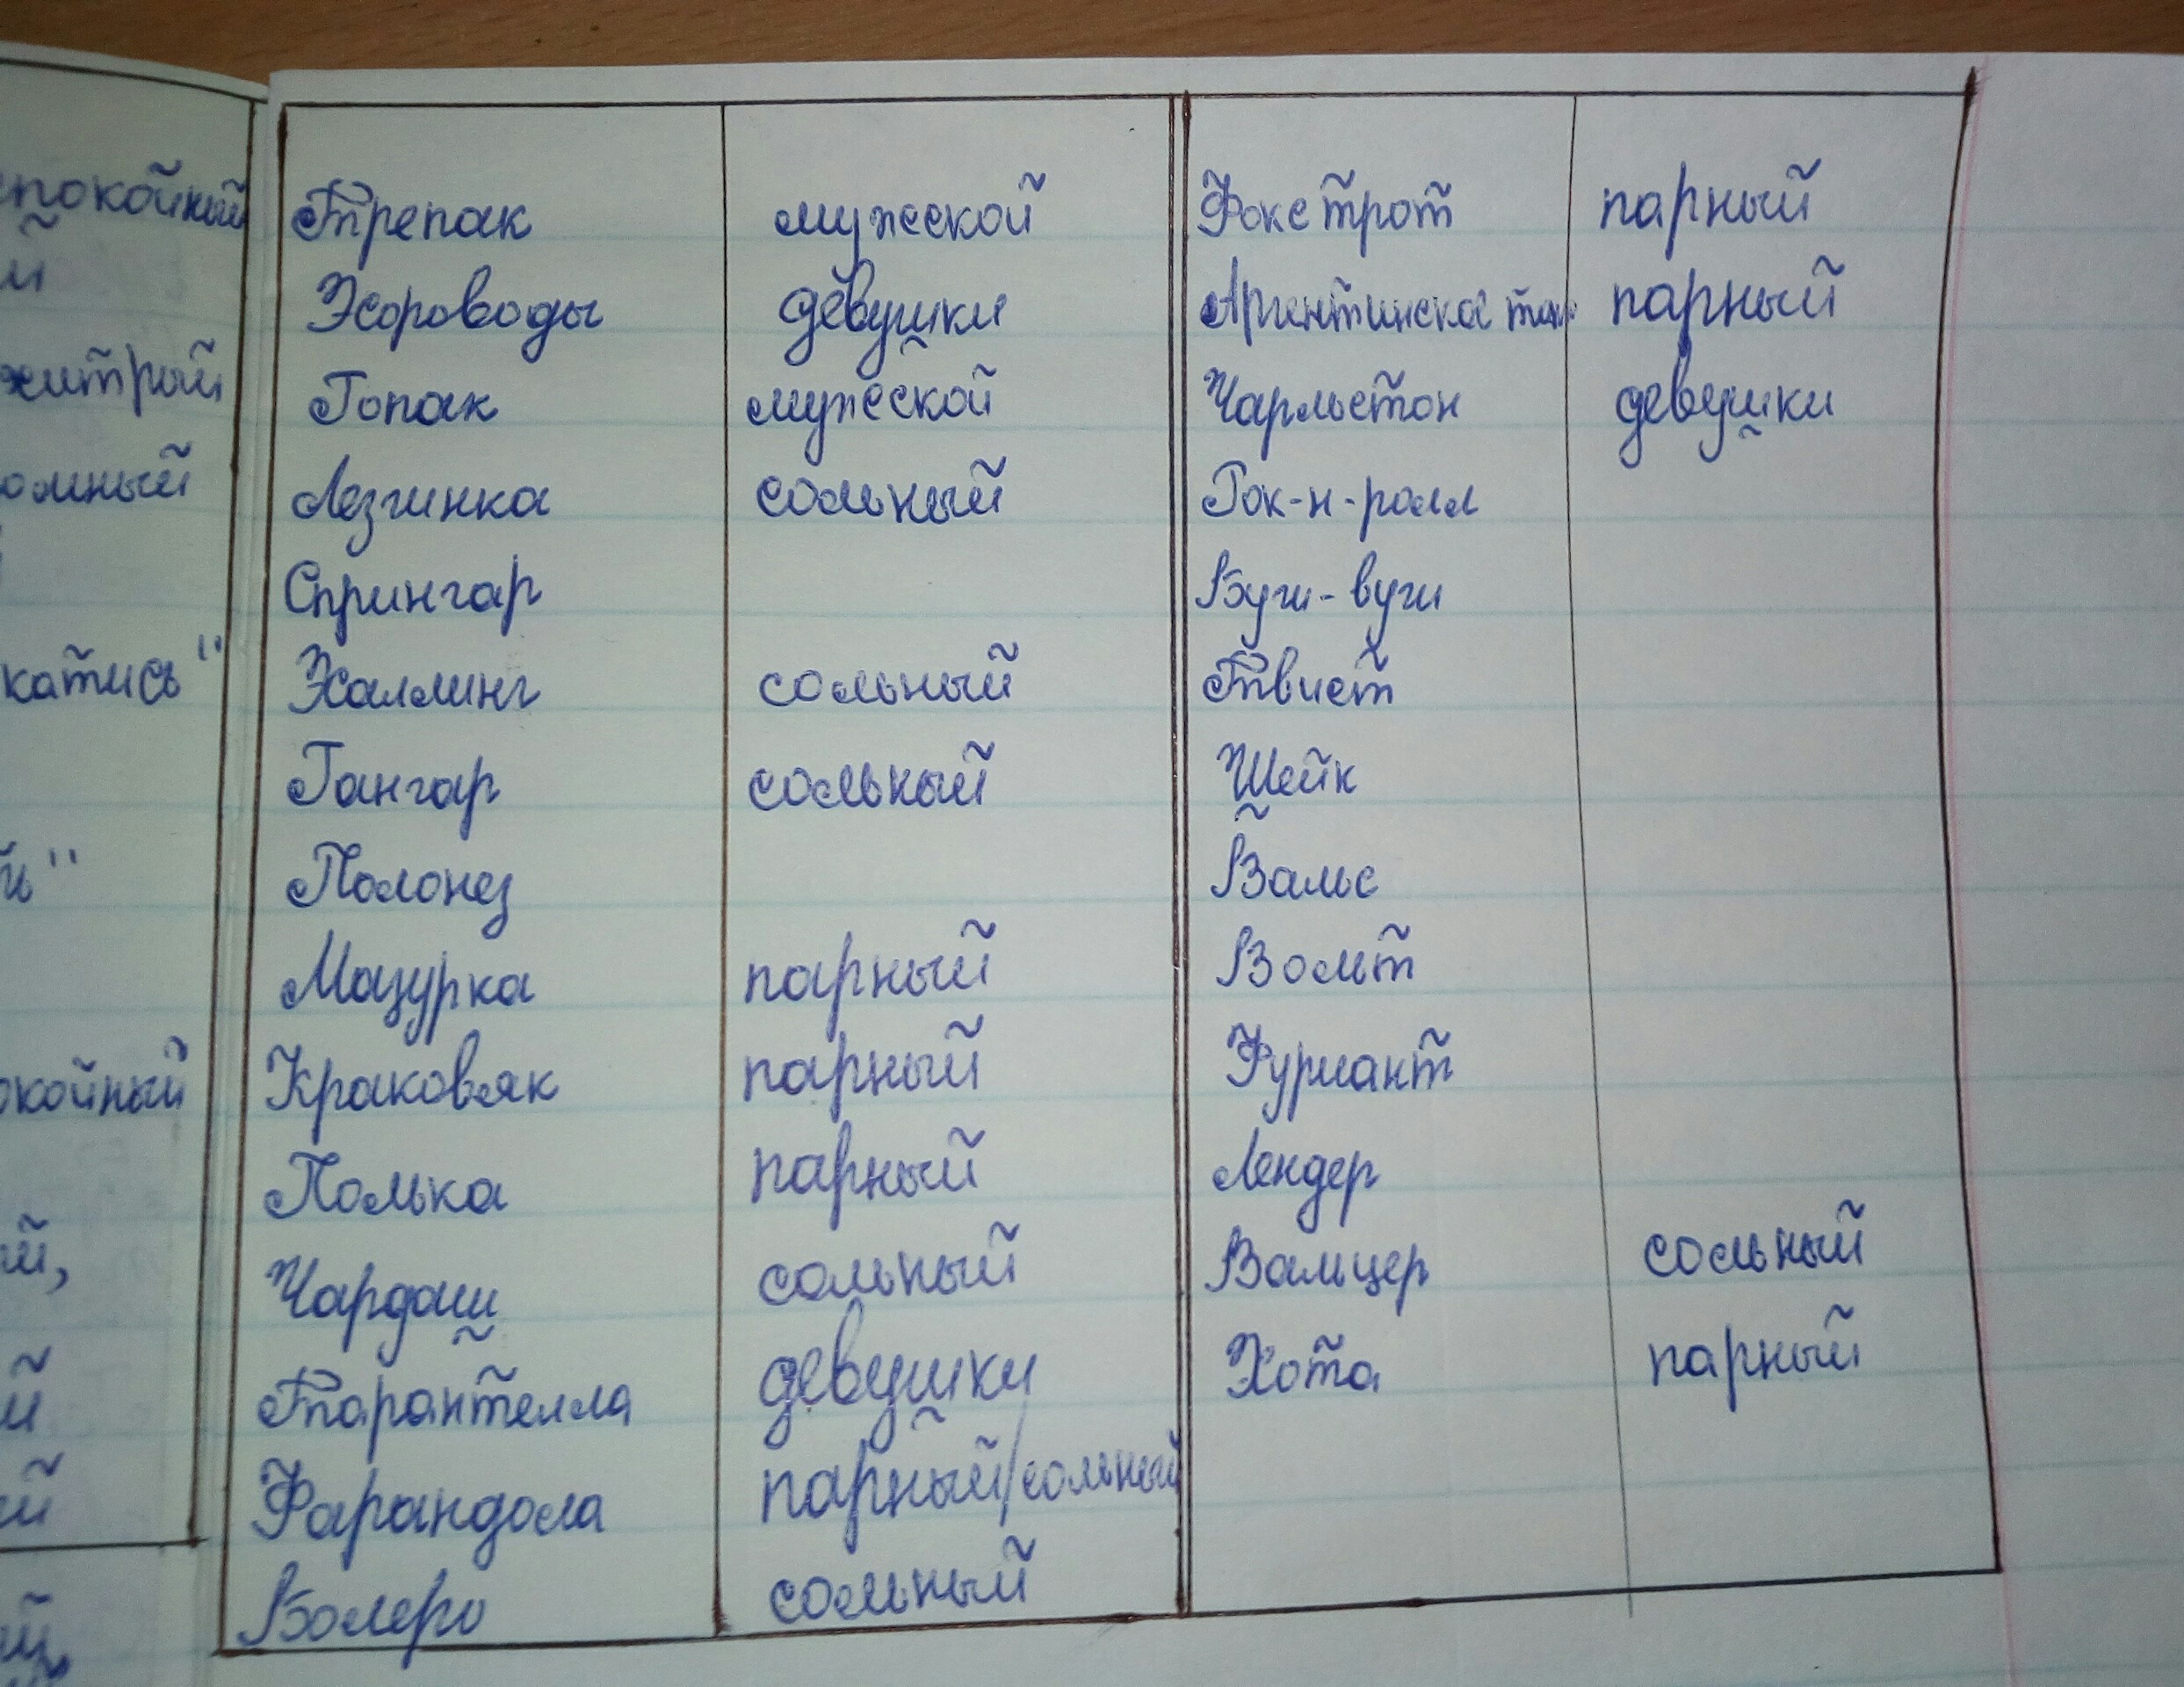 покойный
й
хитрый
омный
катись"
ь"
окойный
ый,
й
ий
ый,
Трепак мужской
Хороводы девушки
Гопак мужской
Лезгинка сольный
Спрингар
Халлинг сольный
Гангар сольный
Полонез
Мазурка парный
Краковяк парный
Полька парный
Чардаш сольный
Тарантелла девушки
Фарандола парный/сольный
Болеро сольный
Фокстрот парный
Аргентинское танго парный
Чарльстон девушки
Рок-н-ролл
Буги-вуги
Твист
Шейк
Вальс
Вольт
Фуриант
Лендер
Вальцер сольный
Хота парный